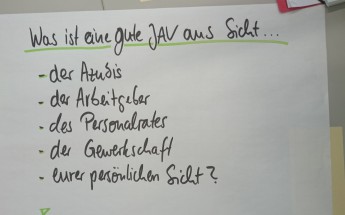 Was ist eine gute JAV aus Sicht...
- der Azubis
- der Arbeitgeber
- des Personalrates
- der Gewerkschaft
- eurer persönlichen Sicht?